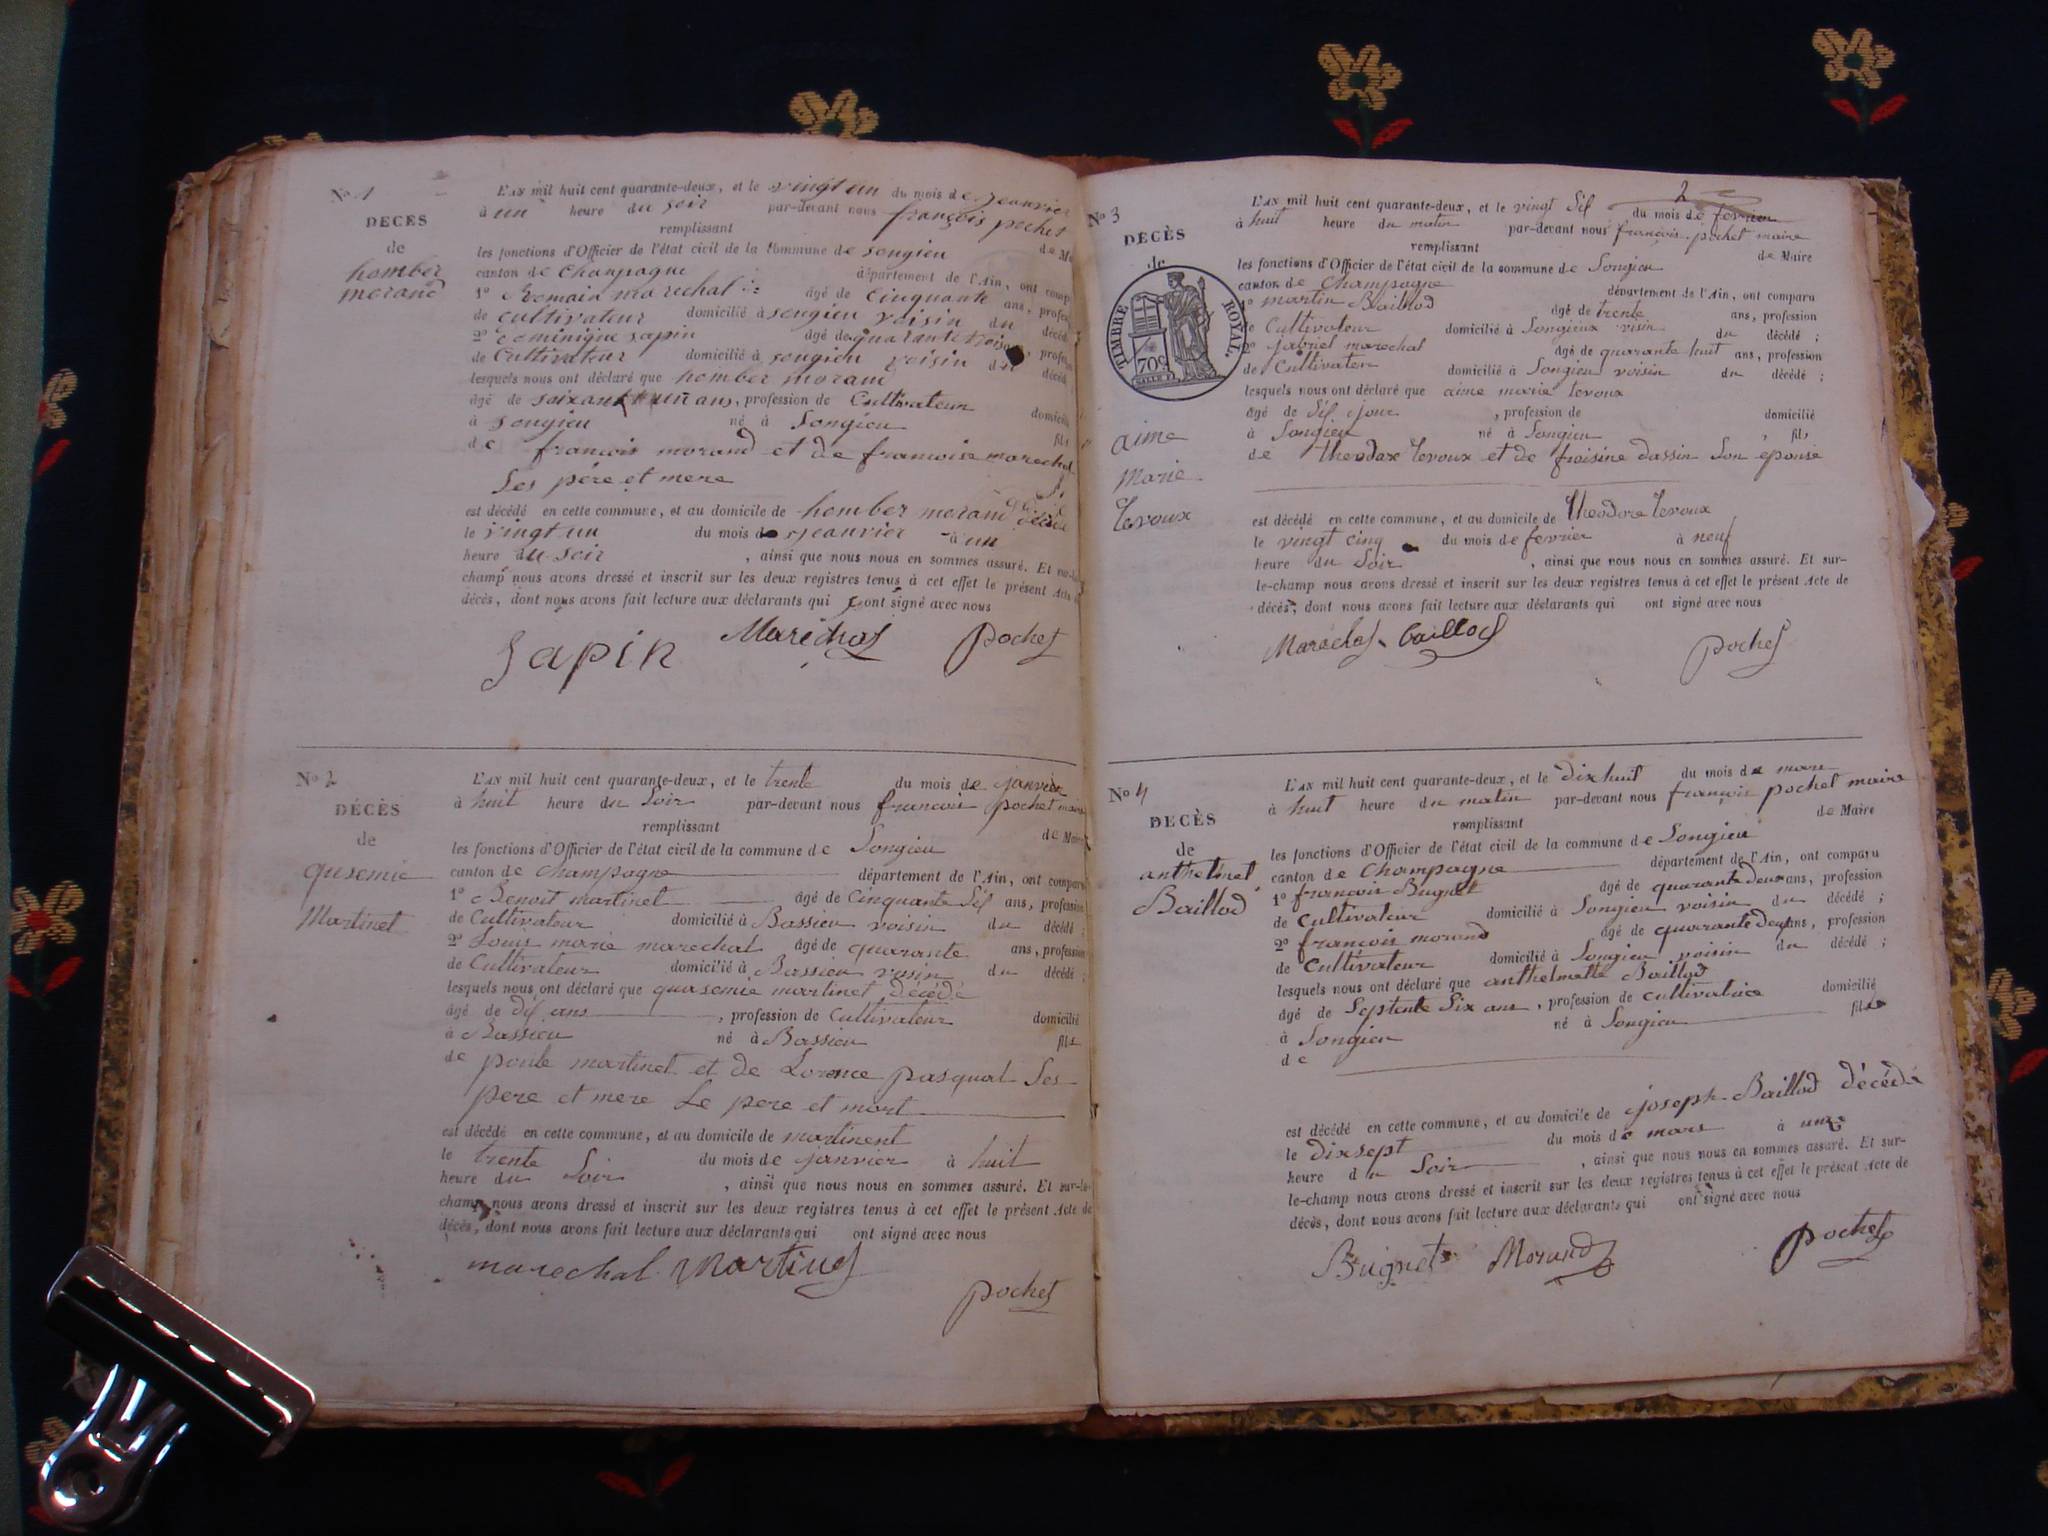 N° 1
DÉCÈS
de
homber
morand
L'AN mil huit cent quarante-deux, et le vingt un du mois de jeanvier
à un heure du soir par-devant nous françois pochet
remplissant de Ma
les fonctions d'Officier de l'état civil de la Commune de songieu
canton de Champagne département de l'Ain, ont comp
1° Romain marechal âgé de Cinquante ans, profes
de cultivateur domicilié à songieu voisin du décédé
2° dominique sapin âgé de quarante trois, profes
de Cultivateur domicilié à songieu voisin du décédé
lesquels nous ont déclaré que homber morand
âgé de soixante un ans, profession de Cultivateur domicilié
à songieu né à Songieu fils
de françois morand et de francoise marechal
Ses père et mere
est décédé en cette commune, et au domicile de homber morand décédé
le vingt un du mois de jeanvier à un
heure du soir , ainsi que nous nous en sommes assuré. Et sur-le-
champ nous avons dressé et inscrit sur les deux registres tenus à cet effet le présent Acte
décès, dont nous avons fait lecture aux déclarants qui ont signé avec nous
Sapin Maréchal Pochet
N° 2
DÉCÈS
de
qusemie
Martinet
L'AN mil huit cent quarante-deux, et le trente du mois de janvier
à huit heure du Soir par-devant nous francois pochet maire
remplissant de Maire
les fonctions d'Officier de l'état civil de la commune de Songieu
canton de Champagne département de l'Ain, ont comparu
1° Benoit martinet âgé de Cinquante Sil ans, profession
de Cultivateur domicilié à Bassieu voisin du décédé ;
2° Louis marie marechal âgé de quarante ans, profession
de Cultivateur domicilié à Bassieu voisin du décédé ;
lesquels nous ont déclaré que quasemie martinet décédé
âgé de dil ans , profession de Cultivateur domicilié
à Bassieu né à Bassieu fils
de poule martinet et de Lorence pasqual Ses
pere et mere Le pere et mort
est décédé en cette commune, et au domicile de martinent
le trente du mois de janvier à huit
heure du Soir , ainsi que nous nous en sommes assuré. Et sur-le-
champ nous avons dressé et inscrit sur les deux registres tenus à cet effet le présent Acte de
décès, dont nous avons fait lecture aux déclarants qui ont signé avec nous
marechal Martinet
Pochet
2
N° 3
DÉCÈS
de
TIMBRE ROYAL.
70 c
aime
Marie
Tevoux
L'AN mil huit cent quarante-deux, et le vingt Sil du mois de fevrier
à huit heure du matin par-devant nous françois pochet maire
remplissant de Maire
les fonctions d'Officier de l'état civil de la commune de Songieu
canton de Champagne département de l'Ain, ont comparu
1° martin Baillod âgé de trente ans, profession
de Cultivateur domicilié à Songieux visin du décédé ;
2° jabriel marechal âgé de quarante huit ans, profession
de Cultivateur domicilié à Songieu voisin du décédé ;
lesquels nous ont déclaré que aime marie tevoux
âgé de Sil jour , profession de domicilié
à Songieu né à Songieu , fils
de theodore tevoux et de froisine dassin Son éponse
est décédé en cette commune, et au domicile de theodore tevoux
le vingt cinq du mois de fevrier à neuf
heure du Soir , ainsi que nous nous en sommes assuré. Et sur-
le-champ nous avons dressé et inscrit sur les deux registres tenus à cet effet le présent Acte de
décès, dont nous avons fait lecture aux déclarants qui ont signé avec nous
Maréchal Baillod
Pochet
N° 4
DÉCÈS
de
anthelmet
Baillod
L'AN mil huit cent quarante-deux, et le dix huit du mois de mars
à huit heure du matin par-devant nous françois pochet maire
remplissant de Maire
les fonctions d'Officier de l'état civil de la commune de Songieu
canton de Champagne département de l'Ain, ont comparu
1° francois Bugnet âgé de quarante deux ans, profession
de Cultivateur domicilié à Songieu voisin du décédé ;
2° françois morand âgé de quarante deux ans, profession
de Cultivateur domicilié à Songieu voisin du décédé ;
lesquels nous ont déclaré que anthelmette Baillod
âgé de Septente Six ans , profession de cultivatrice domicilié
à Songieu né à Songieu fille
de
est décédé en cette commune, et au domicile de joseph Baillod décédé
le dixsept du mois de mars à unze
heure du Soir , ainsi que nous nous en sommes assuré. Et sur-
le-champ nous avons dressé et inscrit sur les deux registres tenus à cet effet le présent Acte de
décès, dont nous avons fait lecture aux déclarants qui ont signé avec nous
Bugnet Morand Pochet